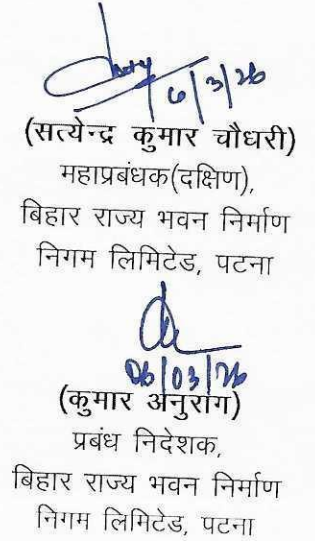 6/3/26
(सत्येन्द्र कुमार चौधरी)
महाप्रबंधक(दक्षिण),
बिहार राज्य भवन निर्माण
निगम लिमिटेड, पटना
06/03/26
(कुमार अनुराग)
प्रबंध निदेशक,
बिहार राज्य भवन निर्माण
निगम लिमिटेड, पटना